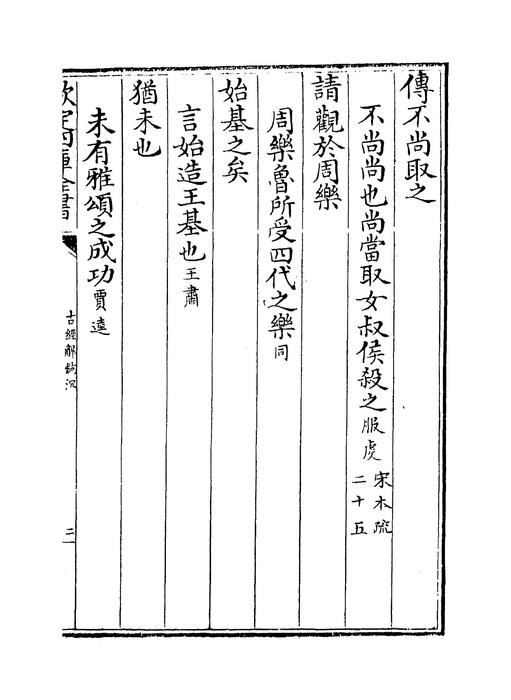 傳不尚取之
不尚尚也尚當取女叔侯殺之服虔宋本疏二十五
請觀於周樂
周樂魯所受四代之樂同
始基之矣
言始造王基也王肅
猶未也
未有雅頌之成功賈逵
欽定四庫全書
古經解鉤沉
二